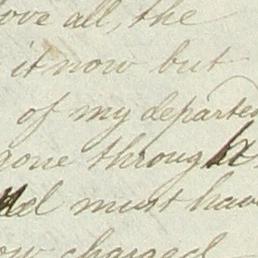 ove all, the
it now but
of my departe
gone through
el must hav
ow charged